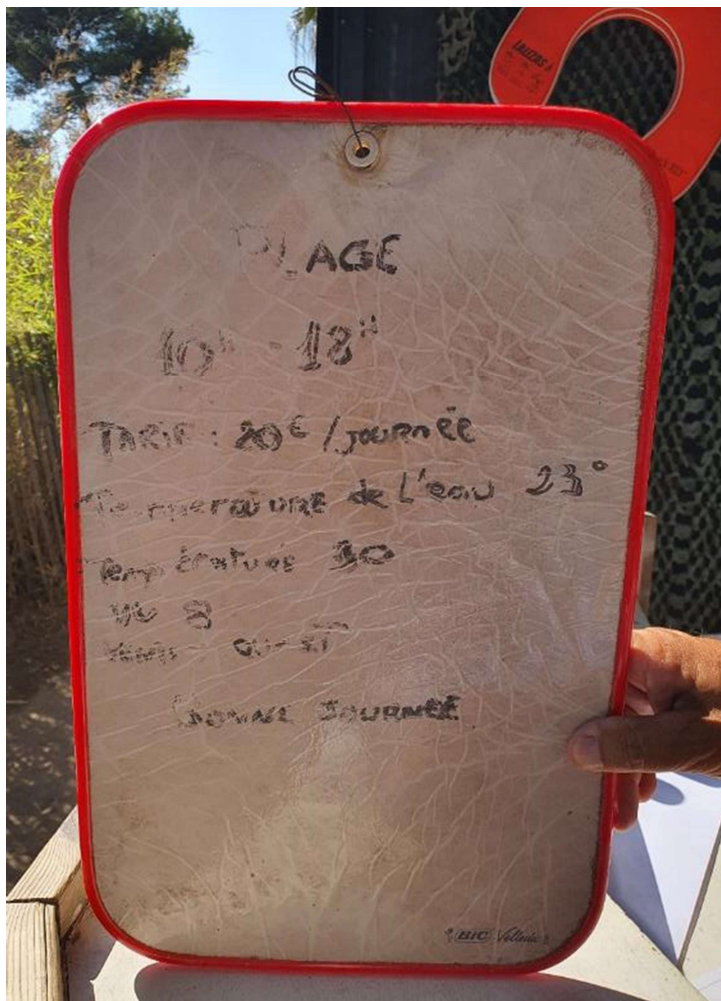 LALIZAS
PLAGE
10H - 18H
TARIF : 20€ / JOURNÉE
Température de L'eau 23°
Température 30
UV 8
Vent OUEST
BONNE JOURNÉE
BIC Velleda